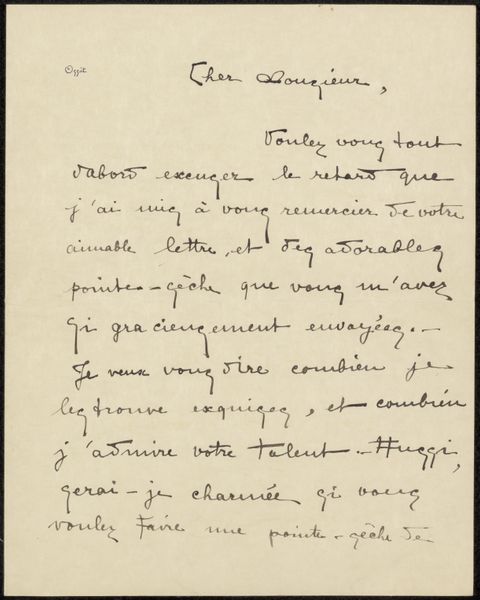 Cher Monsieur,
Voulez vous tout
d'abord excuser le retard que
j'ai mis à vous remercier de votre
aimable lettre, et des adorables
pointe-sèche que vous m'avez
si gracieusement envoyées. -
Je veux vous dire combien je
les trouve exquises, et combien
j'admire votre talent. - Aussi,
serai-je charmée si vous
voulez faire une pointe-sèche de